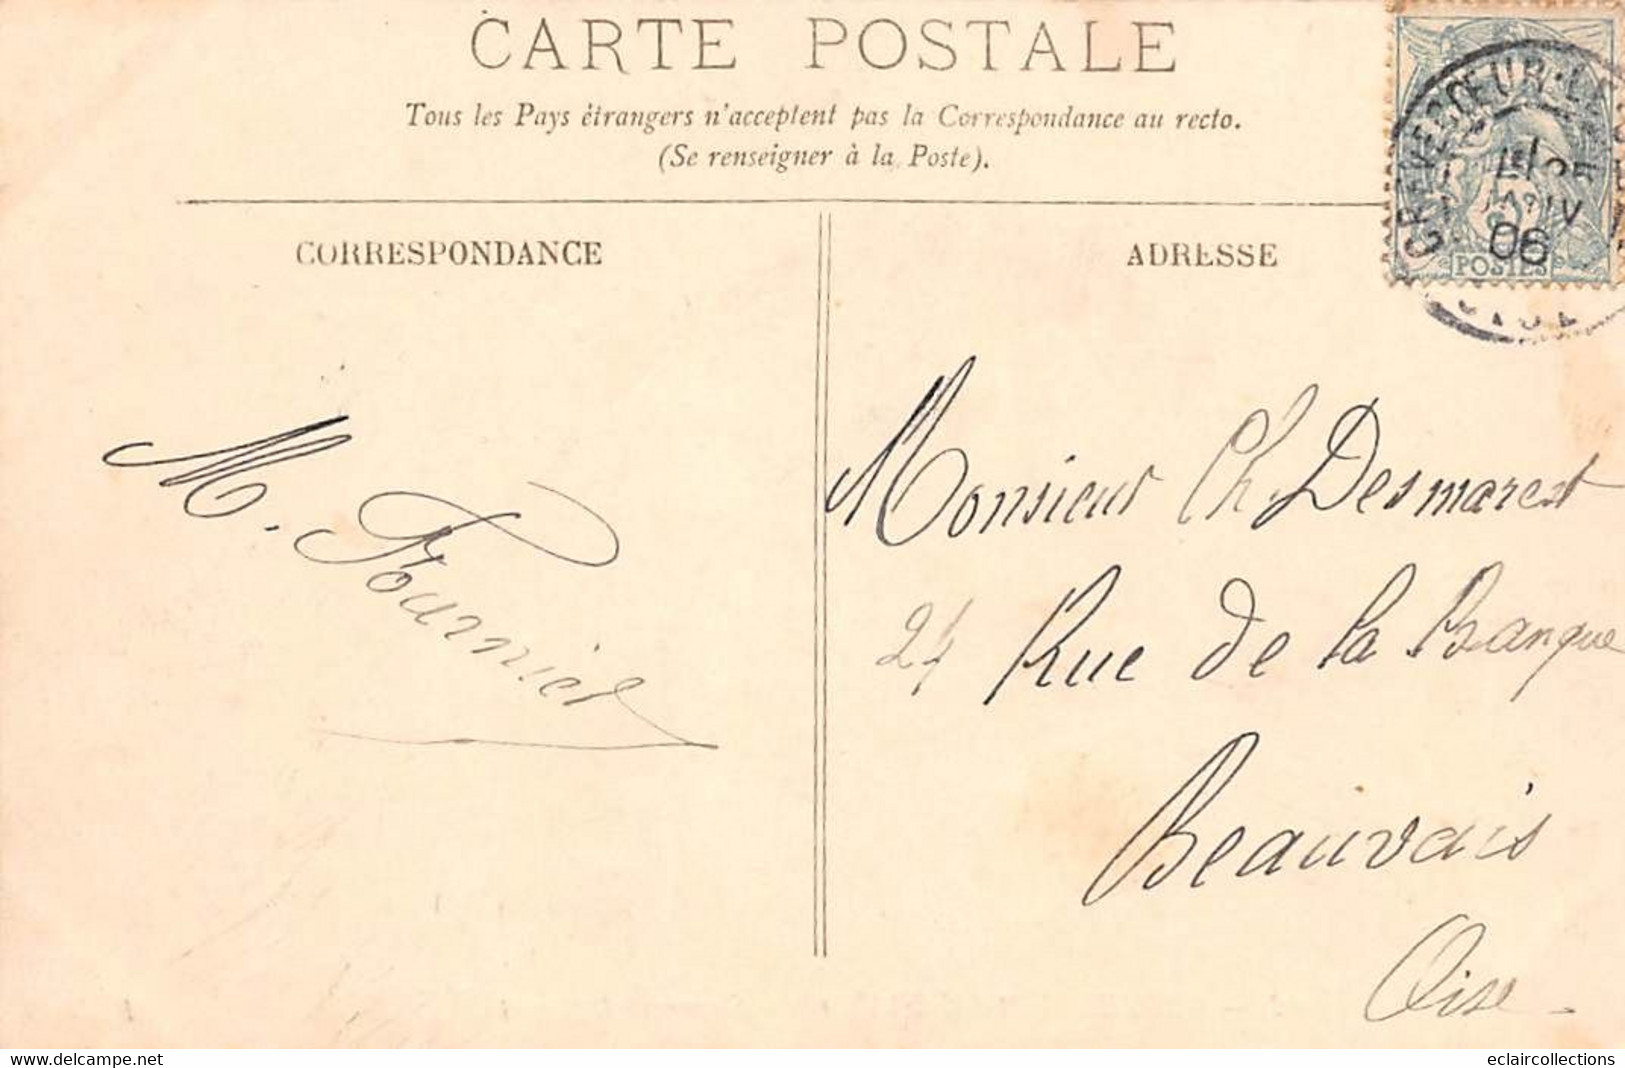 CARTE POSTALE
Tous les Pays étrangers n'acceptent pas la Correspondance au recto.
(Se renseigner à la Poste).
CORRESPONDANCE
ADRESSE
CREVECŒUR-LE
06
POSTES
OISE
M. Fournier
Monsieur Ch. Desmarest
24 Rue de la Banque
Beauvais
Oise.
eclaircollections